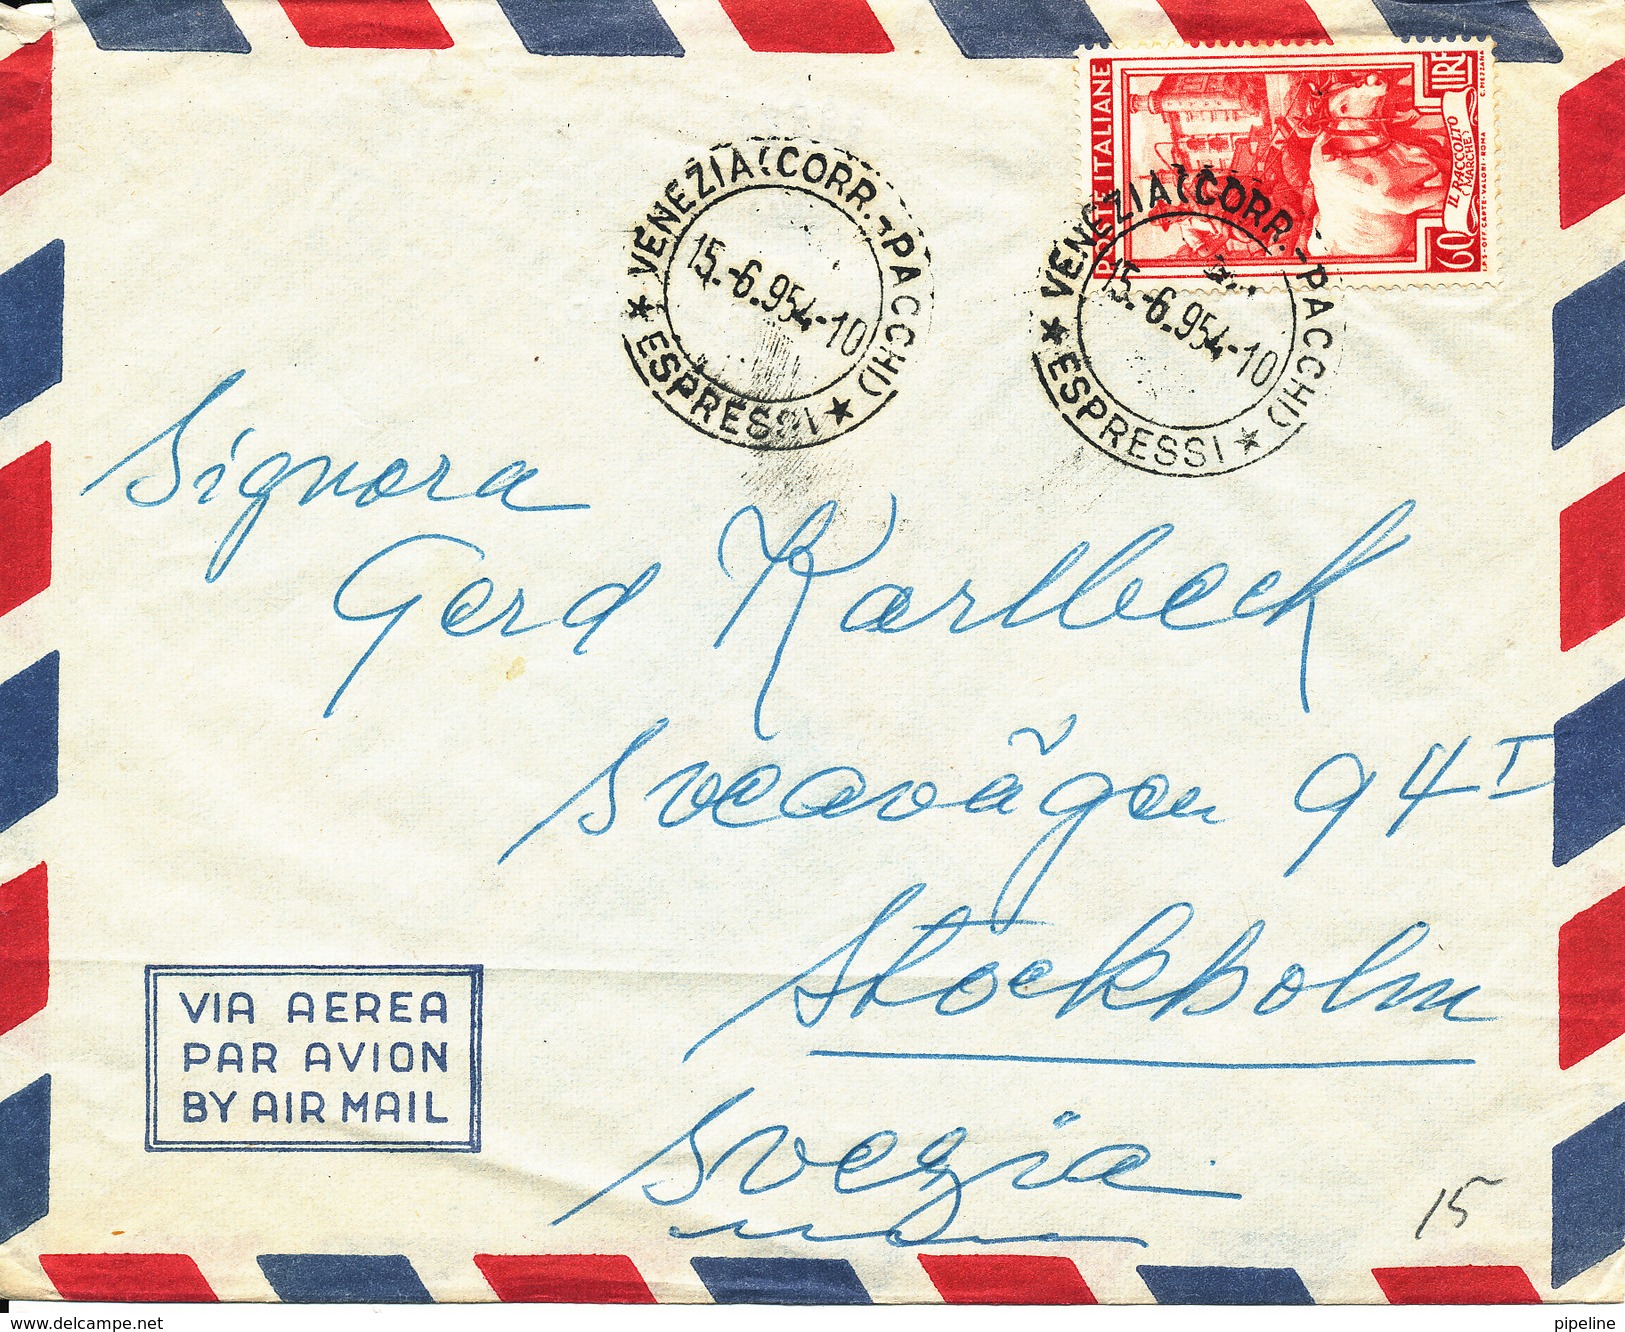 POSTE ITALIANE
LIRE 60
IL RACCOLTO
(MARCHE)
I.P.S.-OFF. CARTE-VALORI-ROMA
C. MEZZANA
VENEZIA (CORR.-PACCHI)
15.-6.954.-10
★ ESPRESSI ★
VENEZIA (CORR.-PACCHI)
15.-6.954.-10
★ ESPRESSI ★
Signora
Gerd Karlbeck
Sveavägen 94 I
Stockholm
Svezia
VIA AEREA
PAR AVION
BY AIR MAIL
15
pipeline